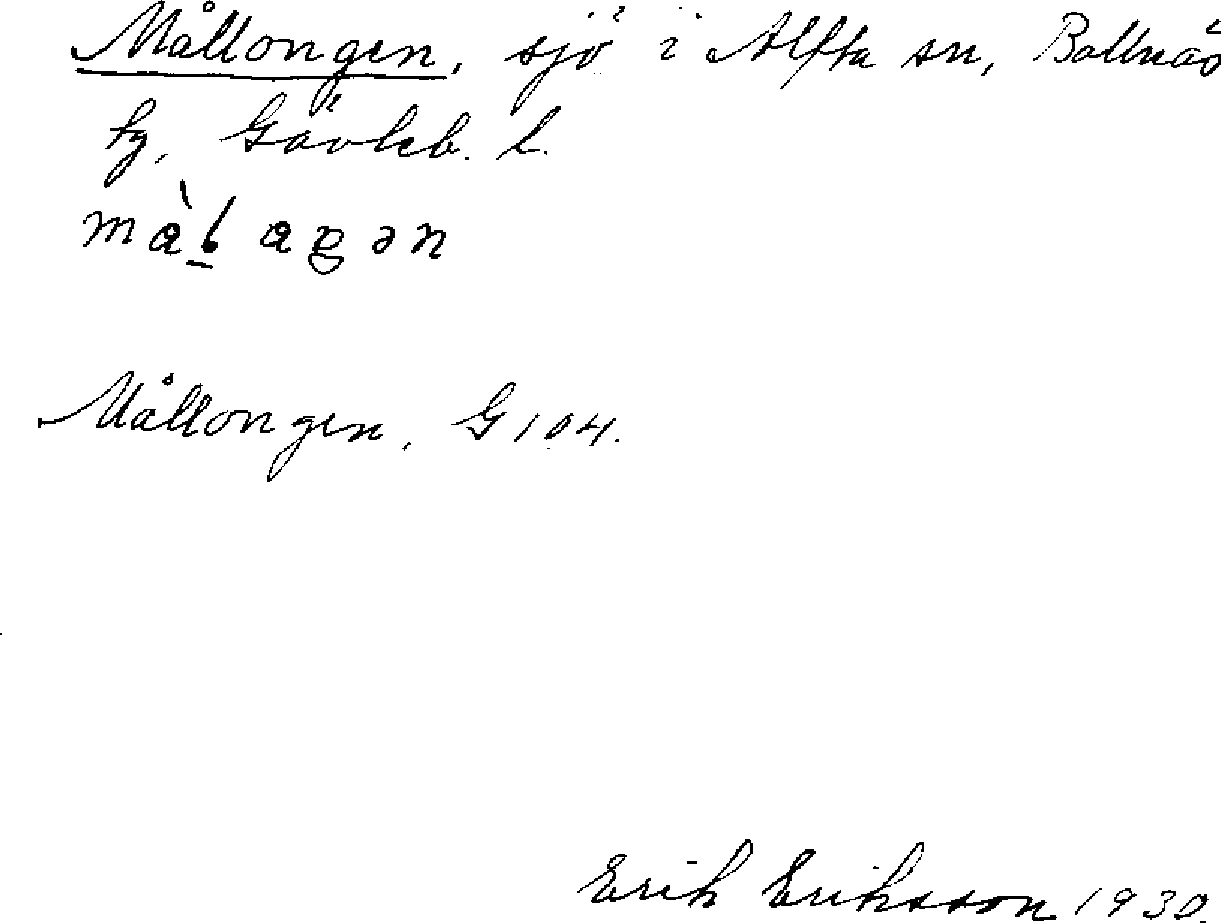 Mållongen, sjö i Alfta sn, Bollnäs
fg, Gävleb. l.
Mållongen, G 104.
Erik Eriksson 1930.